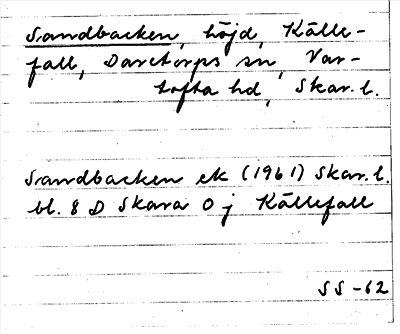 Sandbacken, höjd, Källe-
fall, Daretorps sn, Var-
tofta hd, Skar. l.
Sandbacken ek (1961) Skar. l.
bl. 8 D Skara O j Källefall
SS -62